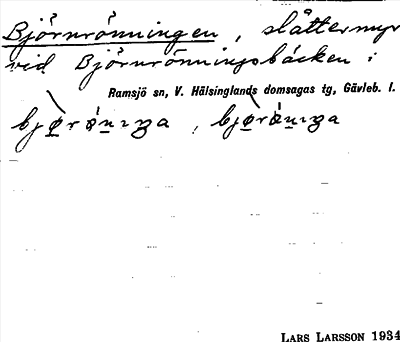 Björnrönningen, slåttermyr
vid Björnrönningsbäcken i
Ramsjö sn, V. Hälsinglands domsagas tg, Gävleb. l.
LARS LARSSON 1934